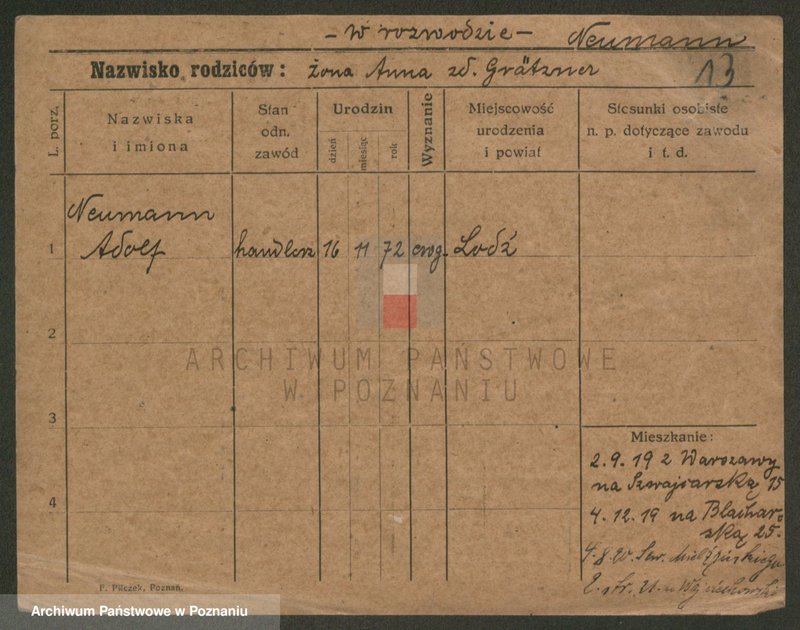 - w rozwodzie - Neumann
Nazwisko rodziców: żona Anna zd. Grätzner 13
L. porz.
Nazwiska
i imiona
Stan
odn.
zawód
Urodzin
dzień
miesiąc
rok
Wyznanie
Miejscowość
urodzenia
i powiat
Stosunki osobiste
n. p. dotyczące zawodu
i t. d.
Neumann
1 Adolf handlarz 16 11 72 ewg. Lodź
2
ARCHIWUM PAŃSTWOWE
W POZNANIU
3
4
Mieszkanie:
2.9.19 z Warszawy
na Szwajcarską 15
4.12.19 na Blachar-
ską 25.
4.8.20. Sew. Mielżyńskiego
2. str. u Wojciechowski
F. Pilczek, Poznań.
Archiwum Państwowe w Poznaniu